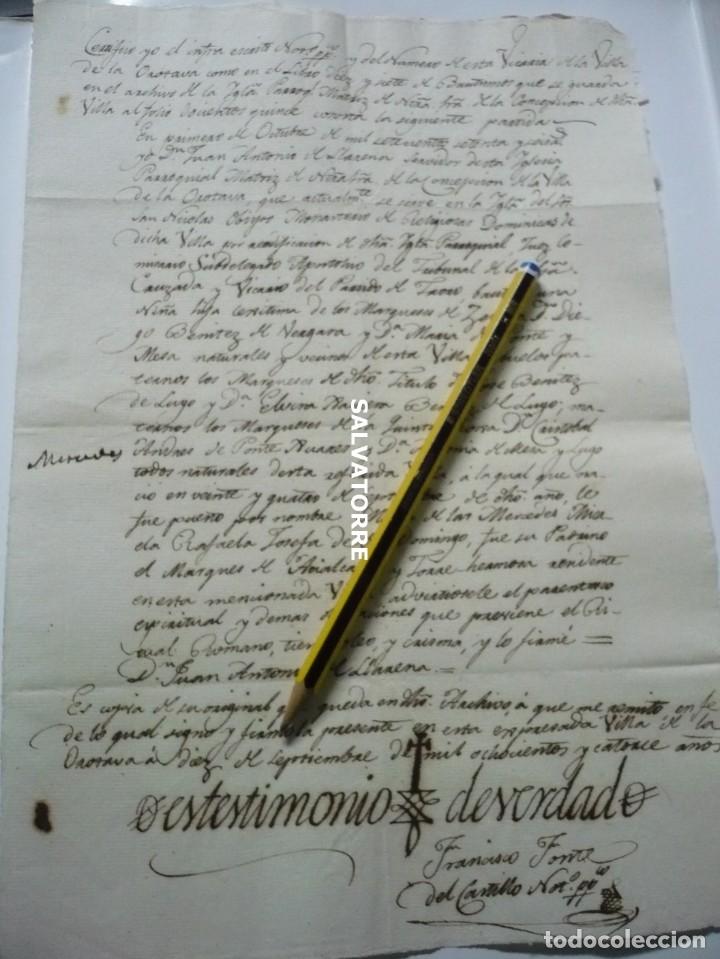 Certifico yo el infra escrito Not.º pp.co y del Numero de esta Vicaria de la Villa
de la Orotava como en el Libro diez y siete de Bautismos que se guarda
en el archivo de la Igl.ª Parroq.l Matriz de Ntra Sra de la Concepcion de dha
Villa al folio doscientos quince consta la siguiente partida
En primero de Octubre de mil setecientos setenta y
yo D.n Juan Antonio de Llarena Servidor de esta Iglesia
Parroquial Matriz de Ntra Sra de la Concepcion de la Villa
de la Orotava que actualm.te se sirve en la Igl.ª del Sor
San Nicolas Obispo Monasterio de Religiosas Dominicas de
dicha Villa por reedificacion de dha Igl.ª Parroquial Juez Co-
misario Subdelegado Apostolico del Tribunal de la S.ta
Cruzada y Vicario del Partido de Taoro, bau una
Niña hija legitima de los Marqueses de D.n Die-
go Benitez de Vergara y D.ª Maria y
Mesa naturales y vecinos de esta Villa abuelos pa-
ternos los Marqueses de dho Titulo Benitez
de Lugo y D.ª Elvira de Lugo; ma-
ternos los Marqueses de la Quinta D.n Cristobal
Mercedes
Andres de Ponte Xuares D.ª de Mesa y Lugo
todos naturales de esta referida Villa, á la qual que na-
cio en veinte y quatro de de dho. año, le
fue puesto por nombre de las Mercedes
Rafaela Josefa Domingo, fue su Padrino
el Marques de y Torre hermosa residente
en esta mencionada advirtiosele el parentesco
espiritual y demas que previene el Ri-
tual Romano, tiene oleo, y crisma, y lo firmé =
D.n Juan Antonio de Llarena. =
Es copia de su original que queda en dho. Archivo, á que me remito en fe
de lo qual signo y firmo la presente en esta expresada Villa de la
Orotava á diez de Septiembre de mil ochocientos y catorce años
en testimonio de verdad
Francisco
del Castillo Not.º pp.co
SALVATORRE
todocoleccion